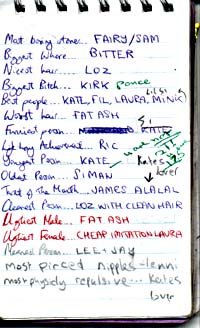 Most boring stoner... FAIRY/SAM
Biggest Whore... BITTER
Nicest hair.... LOZ
Biggest Bitch... KIRK ponce
Best people... KATE, FIL, LAURA, MINK
Worst hair... FAT ASH
Funniest person... KATE
Ric
Youngest Person KATE
Kates lover
Oldest Person... SIMAN
Twat of The Month... JAMES ALALAL
Cleanest Person... LOZ WITH CLEAN HAIR
Ugliest Male... FAT ASH
Ugliest Female... CHEAP IMITATION LAURA
Person... LEE + JAY
Most pirced nipples - lenni
most physicly repulsive... Kates
lover